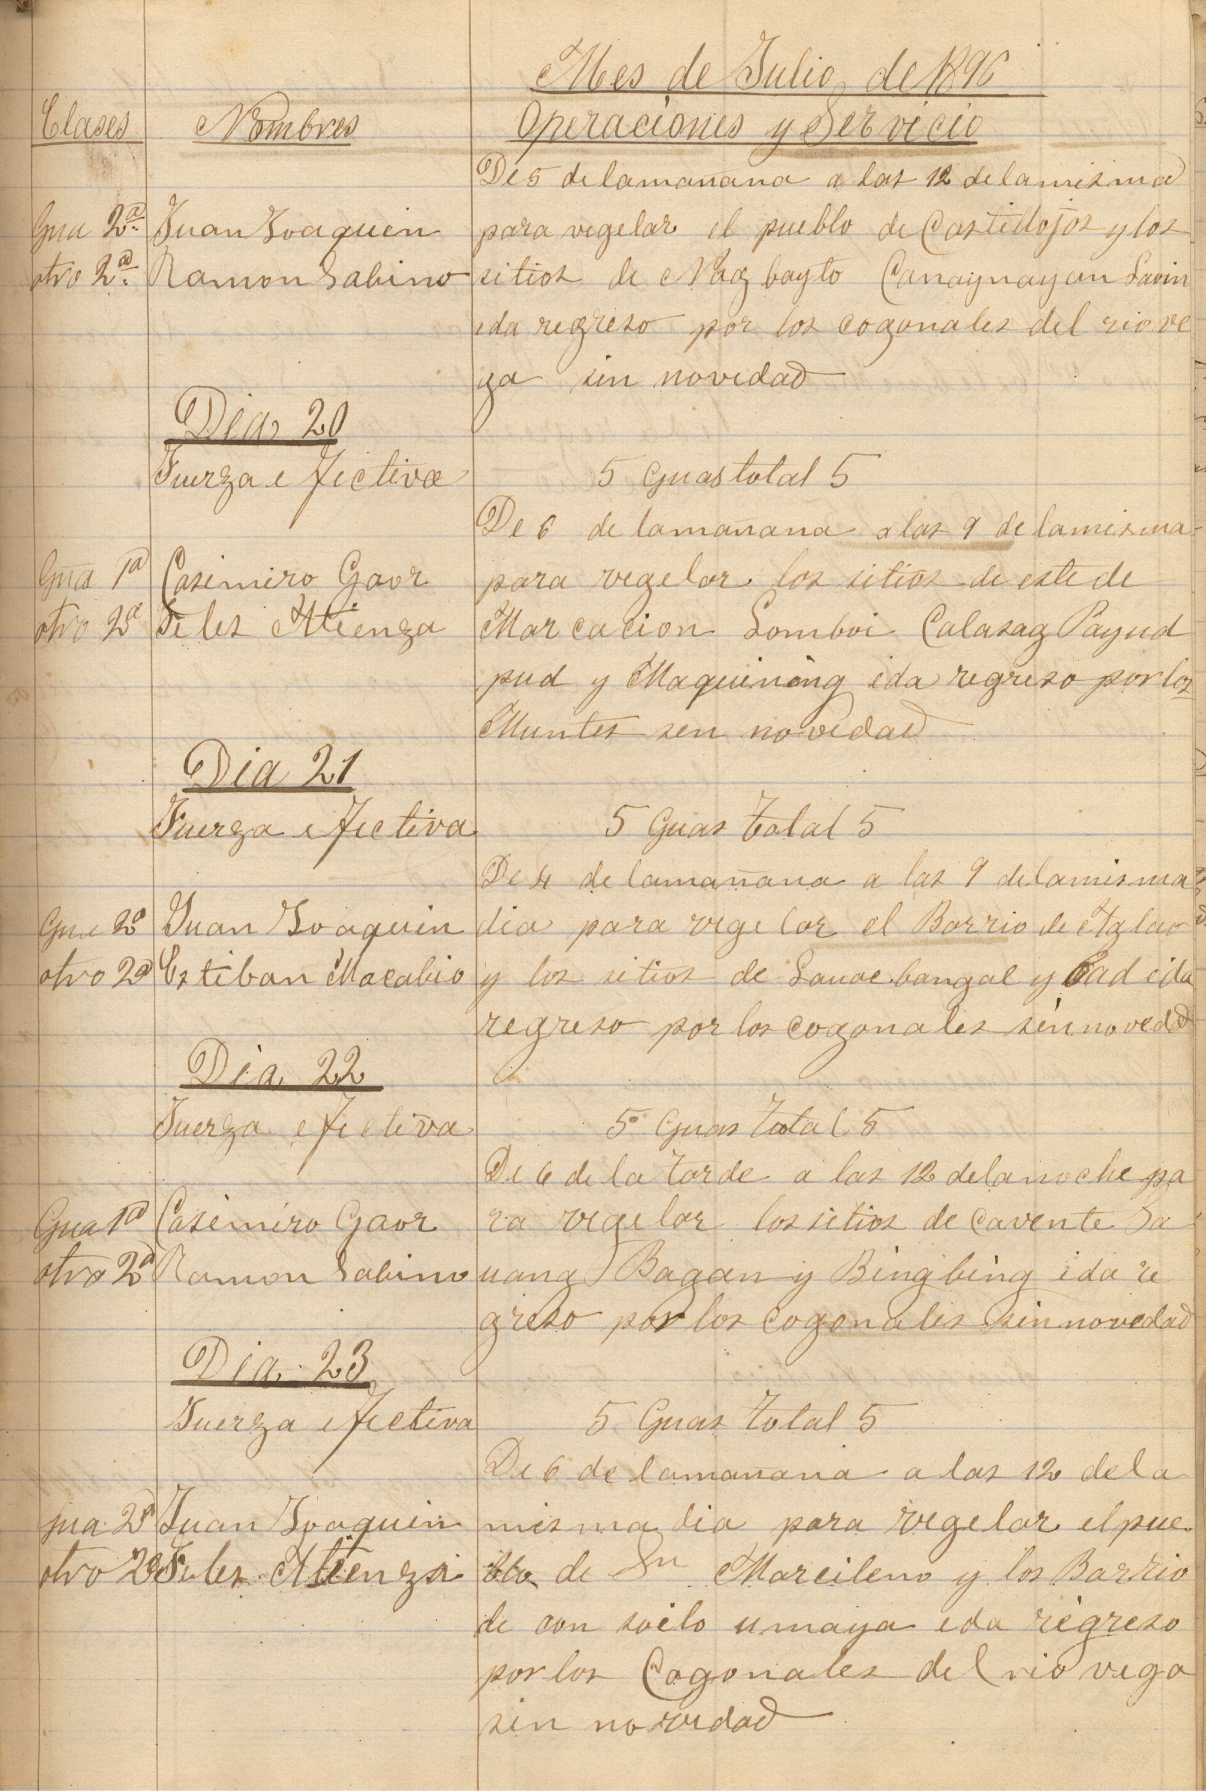 Mes de Julio de 1896
Clases Nombres Operaciones y Servicio
De 5 de la mañana a las 12 de la misma
Gua 2ª Juan Joaquin para vegelar el pueblo de Castidojos y los
otro 2ª Ramon Sabino sitios de Nagbayto Canaynayan
ida regreso por los cogonales del rio ve
ga sin novedad
Dia 20
Fuerza efectiva 5 Guas total 5
De 6 de la mañana a las 9 de la misma
Gua 1ª Casimiro Gaor para vegelar los sitios de este de
otro 2ª Feles Atienza Marcacion Lomboi Calasag Payud
pud y Maquining ida regreso por los
Muntes sen novedad
Dia 21
Fuerza efectiva 5 Guas total 5
De 4 de la mañana a las 9 de la misma
Gua 2ª Juan Joaquin dia para vegelar el Barrio de Aglao
otro 2ª Estiban Macabio y los sitios de bangal y ida
regreso por los cogonales sin novedad
Dia 22
Fuerza efectiva 5 Guas total 5
De 6 de la tarde a las 12 de la noche pa
Gua 1ª Casimiro Gaor ra vegelar los sitios de Cavente Sa
otro 2ª Ramon Sabino uang Bagan y Bingbing ida re
greso por los cogonales sin novedad
Dia 23
Fuerza efectiva 5 Guas total 5
De 6 de la mañana a las 12 de la
Gua 2ª Juan Joaquin misma dia para vegelar el pue
otro 2ª Feles Atienza blo de Sn Marcileno y los Barrio
de con soilo umaya ida regreso
por los Cogonales del rio vega
sin novedad